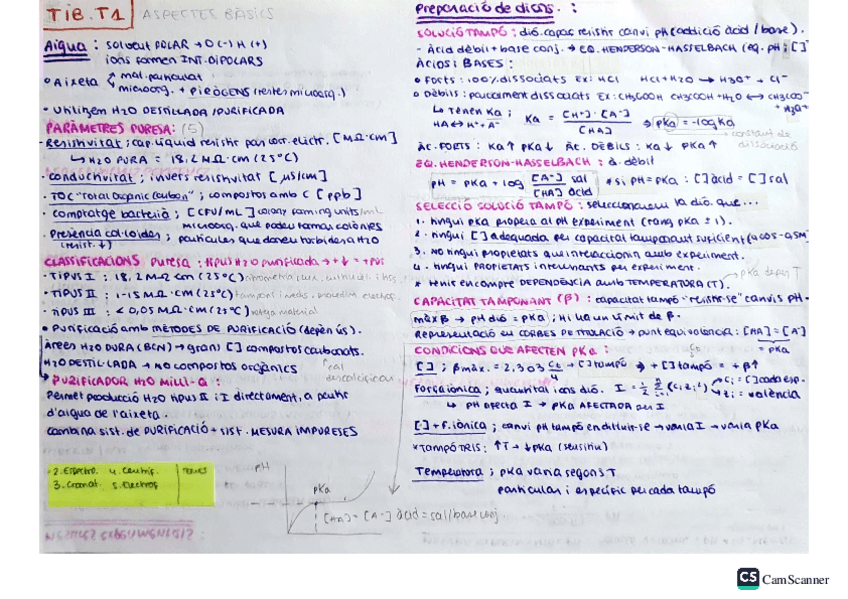 TIB.T1 | ASPECTES BÀSICS
Aigua : solvent POLAR → O(-) H(+)
ions formen INT. DIPOLARS
• Aixeta
mat. particulat
microorg. + PIRÒGENS (restes microorg.)
• Utilitzem H2O DESTIL·LADA /PURIFICADA
PARÀMETRES PURESA: (5)
- Resistivitat ; cap. líquid resistir pas corr. elèctr. [MΩ·cm]
↳ H2O PURA = 18,2 MΩ·cm (25°C)
- conductivitat ; invers resistivitat [µS/cm]
- TOC "Total Organic Carbon" ; compostos amb C [ppb]
- comptatge bacterià ; [CFU/mL] colony forming units/mL
microorg. que poden formar colònies
- Presència col·loides ; partícules que donen turbidesa H2O
(resist. ↓)
CLASSIFICACIONS Puresa : tipus H2O purificada → ↓ = +pur
- TIPUS I : 18,2 MΩ·cm (25°C)
- TIPUS II : 1-15 MΩ·cm (25°C)
- TIPUS III : < 0,05 MΩ·cm (25°C) neteja material
• Purificació amb MÈTODES DE PURIFICACIÓ (depèn ús).
Àrees H2O DURA (BCN) → grans [] compostos carbonats.
H2O DESTIL·LADA → NO compostos orgànics
cal descalcificar
↳ PURIFICADOR H2O MILLI-Q :
Permet producció H2O tipus II i I directament, a partir
d'aigua de l'aixeta.
combina sist. de PURIFICACIÓ + SIST. MESURA IMPURESES
2. Espectro. 4. Centrif.
3. Cromat. 5. Electrof.
pH
pKa
[HA] = [A-] àcid = sal/base conj
Preparació de dions. :
SOLUCIÓ TAMPÓ : dió. capaç resistir canvi pH (addició àcid / base).
- Àcid dèbil + base conj. → EQ. HENDERSON-HASSELBACH (eq. pH ; [])
ÀCIDS I BASES :
• Forts : 100% dissociats Ex: HCl HCl + H2O → H3O+ + Cl-
• Dèbils : parcialment dissociats Ex: CH3COOH CH3COOH + H2O ⟷ CH3COO- + H3O+
↳ Tenen Ka ; Ka = [H+]·[A-] / [HA] → pKa = -log Ka
HA ⟷ H+ + A-
constant de dissociació
ÀC. FORTS : Ka ↑ pKa ↓ ÀC. DÈBILS : Ka ↓ pKa ↑
EQ. HENDERSON-HASSELBACH : à. dèbil
pH = pKa + log [A-] sal / [HA] àcid * si pH = pKa : [] àcid = [] sal
SELECCIÓ SOLUCIÓ TAMPÓ : seleccionarem la dió. que ...
1. tingui pKa propera al pH experiment (rang pKa ± 1).
2. tingui [] adequada per capacitat tamponant suficient (0,05-0,5M)
3. NO tingui propietats que interaccionin amb experiment.
4. tingui PROPIETATS interessants per experiment.
* tenir en compte DEPENDÈNCIA amb TEMPERATURA (T). → pKa depèn T
CAPACITAT TAMPONANT (β) : capacitat tampó "resistir-se" canvis pH.
màx β → pH dió = pKa ; hi ha un límit de β.
Representació en CORBES DE TITULACIÓ → punt equivalència : [HA] = [A-]
= pKa
CONDICIONS QUE AFECTEN pKa :
[] ; β màx. = 2,303 Ct/4 → [] tampó ⇒ + [] tampó = + β ↑
Força iònica ; quantitat ions dió. I = 1/2 Σ (ci·zi²) ci = [] cada esp. zi = valència
↳ pH afecta I → pKa AFECTADA per I
[] + f. iònica ; canvi pH tampó en diluir-se → varia I → varia pKa
* TAMPÓ TRIS : ↑T → ↓pKa (sensitiu)
Temperatura ; pKa varia segons T
particular i específic per cada tampó
CS CamScanner